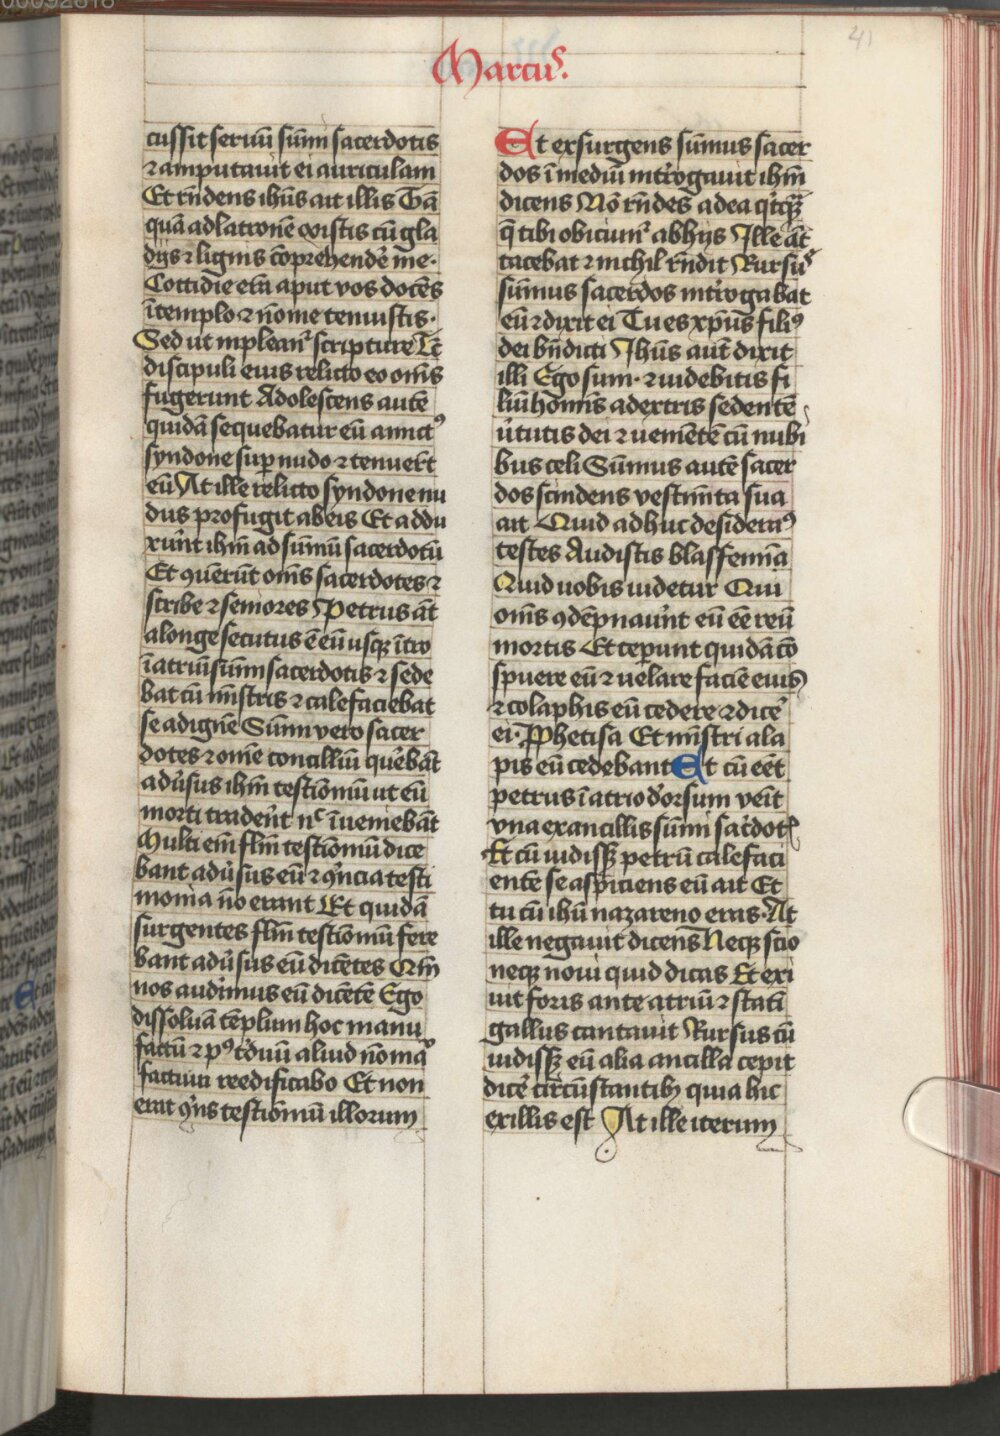 Marcus.
41
cussit seruū sūmi sacerdotis
⁊ amputauit ei auriculam
Et rn̄dens ihūs ait illis Tā
quā ad latronē existis cū gla
dijs ⁊ lignis cōprehendē me·
Cottidie erā aput vos docēs
ī templo ⁊ nō me tenuistis·
Sed ut impleant᷑ scripture Tc̄
discipuli eius relicto eo om̄s
fugerunt Adolescens autē
quidā sequebatur eū amictꝰ
syndone sup nudo ⁊ tenuer̄t
eū At ille relicto syndone nu
dus profugit ab eis Et addu
xer̄unt ihm̄ ad sūmū sacerdotū
Et ꝯuenerūt om̄s sacerdotes ⁊
scribe ⁊ seniores Petrus aūt
a longe secutus ē eū usqꝫ ītro
ī atriū sūmi sacerdotis ⁊ sede
bat cū mīstris ⁊ calefaciebat
se ad ignē Sūmi vero sacer
dotes ⁊ om̄e concilliū querebāt
adūsus ihm̄ testīoniū ut eū
morti traderēt nᶜ īueniebāt
Multi em̄ flm̄ testīoniū dice
bant adūsus eū ⁊ ꝯueniēcia testi
monia nō erant Et quidā
surgentes flm̄ testīoniū fere
bant adūsus eū dicētes Qm̄
nos audiuimus eū dicētē Ego
dissoluā tēplum hoc manu
factū ⁊ pꝰ tᷓduū aliud nō māu
factum reedificabo Et non
erat ꝯueniēs testīoniū illorum
Et exsurgens sūmus sacer
dos ī mediū int̄rogauit ihm̄
dicens Nō rn̄des ad ea qͥcqᷓꝫ
q̄ tibi obiciunt᷑ ab hijs Ille aūt
tacebat ⁊ nichil rn̄dit Rursūs
sūmus sacerdos int̄rogabat
eū ⁊ dixit ei Tu es xp̄us filiꝰ
dei bn̄dicti Ihūs autē dixit
illi Ego sum· ⁊ uidebitis fi
liū hom̄is a dextris sedentē
ūtutis dei ⁊ uenīetē cū nubi
bus celi Sūmus autē sacer
dos scindens vestim̄ta sua
ait Quid adhuc desideratꝰ
testes Audistis blassemiā
Quid uobis uidetur Qui
om̄s ꝯdēpnauūt eū eē reū
mortis Et ceperunt quidā cō
spuere eū ⁊ uelare faciē eius
⁊ colaphis eū cedere ⁊ dicē
ei· Pphetisa Et mīstri ala
pis eū cedebant Et cū eēt
petrus ī atrio dorsum veīt
vna ex ancillis sūmi sac̄dotꝭ
Et cū uidissꝫ petrū calefaci
entē se aspiciens eū ait Et
tu cū ihū nazareno eras· At
ille negauit dicens Neqꝫ scio
neqꝫ noui quid dicas Et exi
uit foris ante atriū ⁊ statī
gallus cantauit Rursus cū
uidissꝫ eū alia ancilla cepit
dicē circūstantibꝫ quia hic
ex illis est At ille iterum